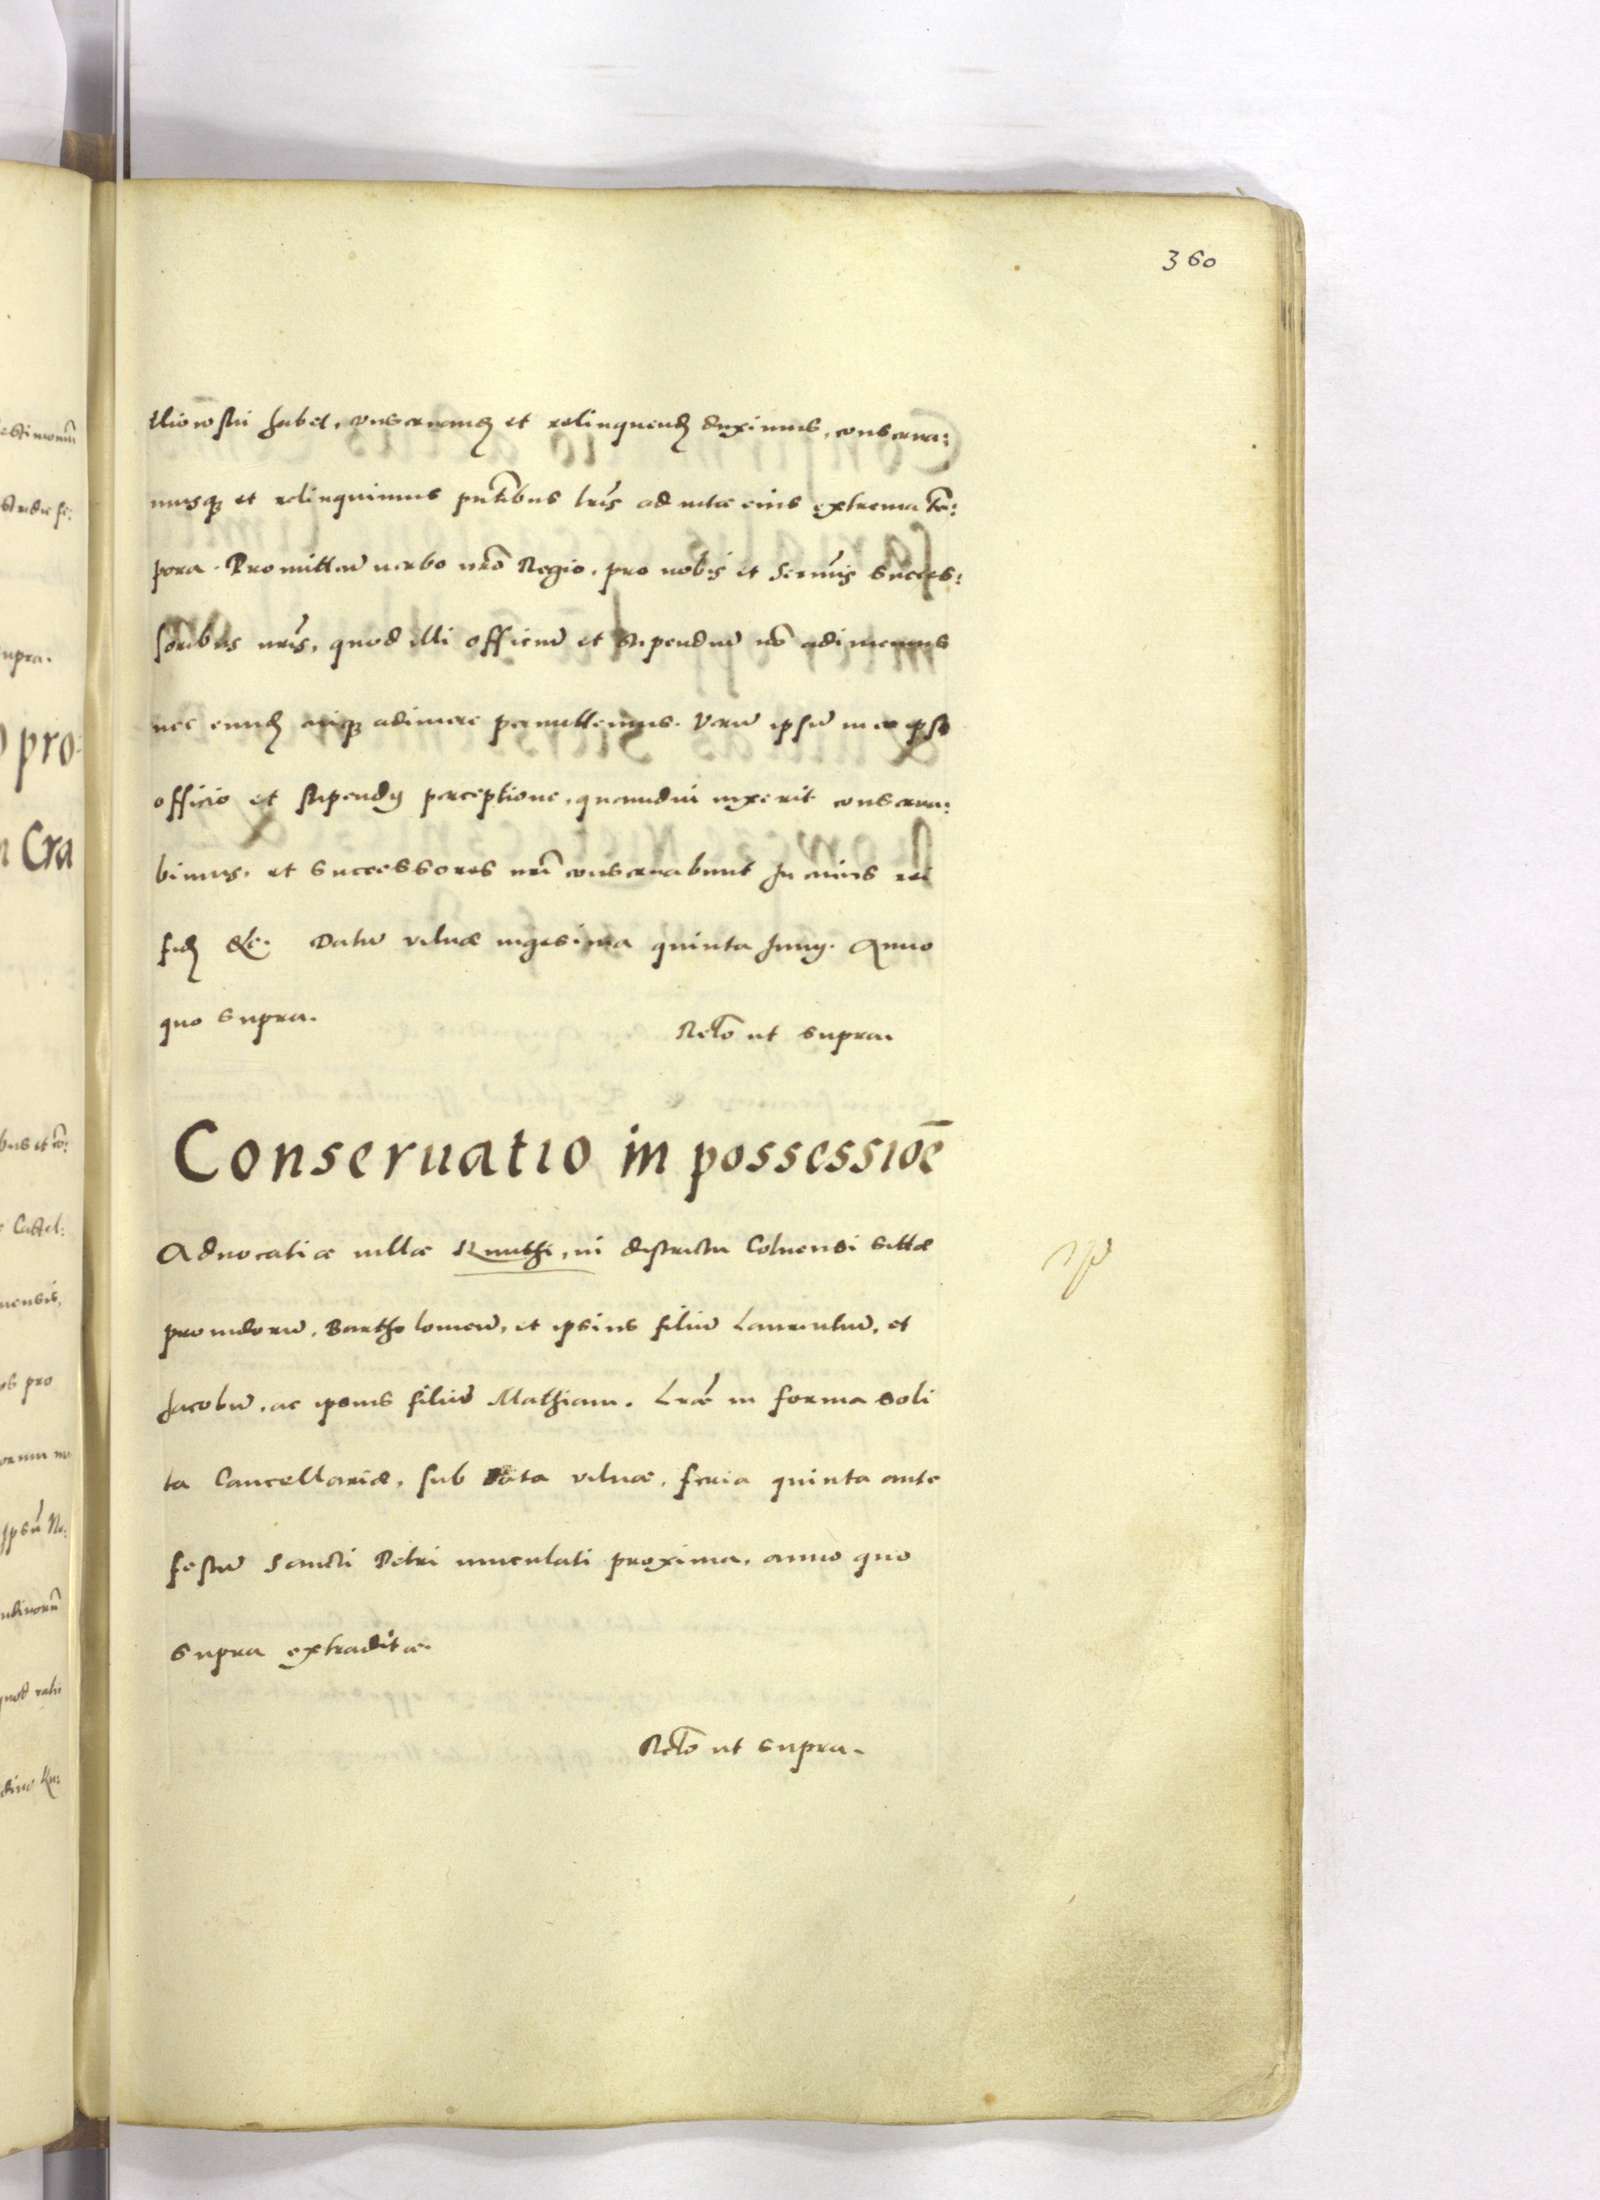 360
Uiowstii habet, conseruand et relinquend duximus, conserua:
musq et relinquimus pntibus lris ad vitae eius extrema tem:
pora. Promitten verbo nro Regio, pro nobis et Sermis succes:
soribus nris, quod illi officiu et stipendiu no adimemus
nec cuiq adimere permittemus. Veru ipsu in eo ipso
officio et stipendij perceptione, quamdiu vixerit conserua:
bimus, et successores nri conseruabunt In cuius rei
fid &c. Datu vilnae vigesima quinta Junij. Anno
quo supra.
Relo ut supra.
Conseruatio in possessioē
Aduocatiae villae Knuthi, in districtu Colnensi sittae
prouidoru, Bartholomeu, et ipsius filiu Laurentiu, et
Jacobu, ac ipsius filiu Mathiam. Lrae in forma soli
ta Cancellariae, sub Data vilnae, feria quinta ante
festu Sancti Petri vinculati proxima, anno quo
supra extraditae.
Relo ut supra.